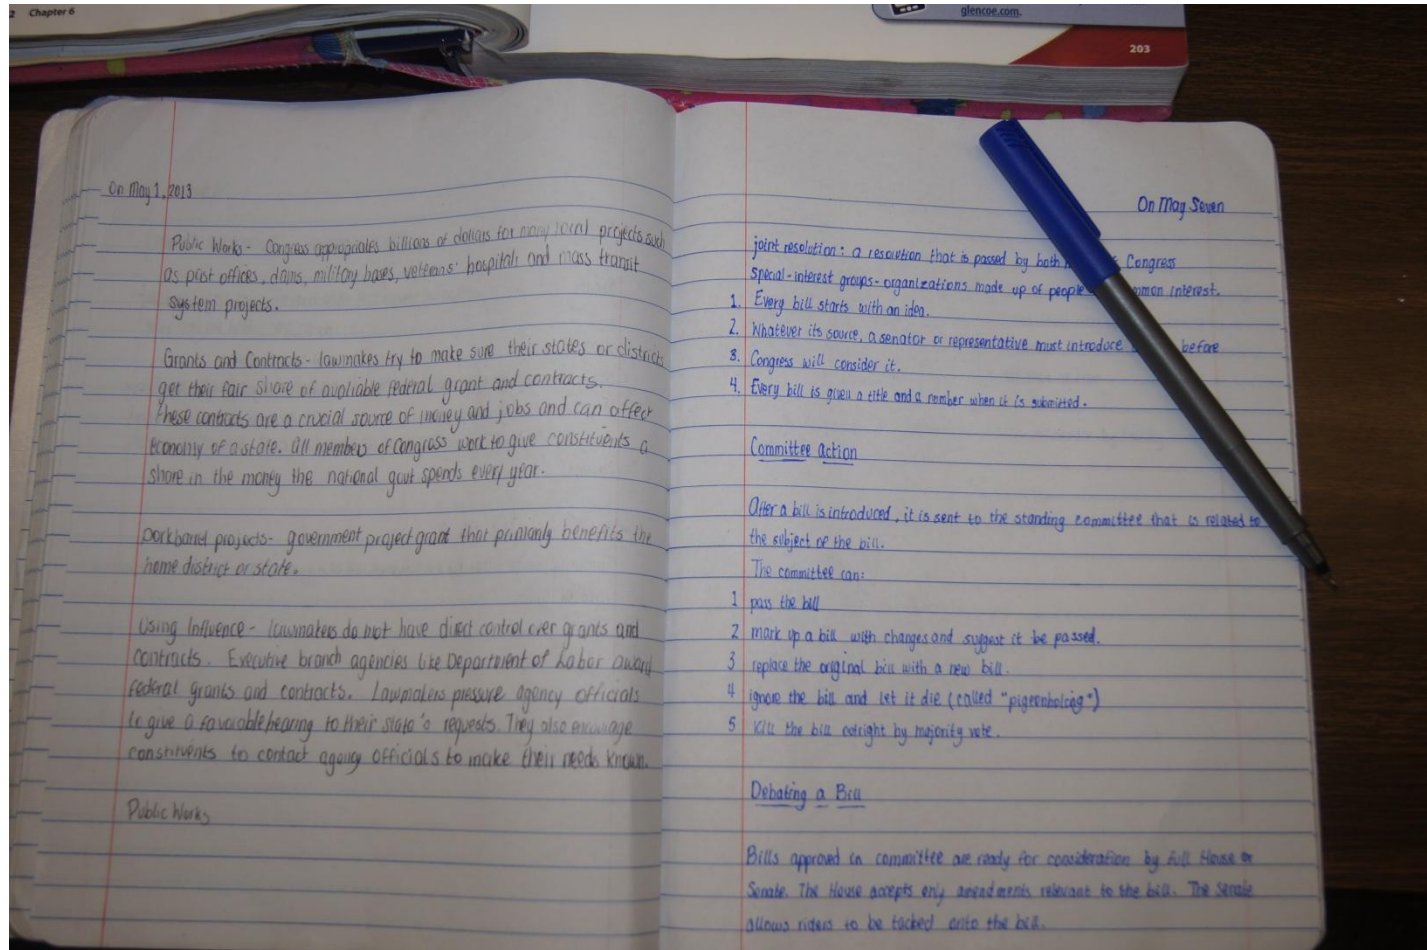 2 Chapter 6
glencoe.com.
203
On May 1, 2013
Public Works - Congress appropriates billions of dollars for many local projects such
as post offices, dams, military bases, veterans' hospitals and mass transit
system projects.
Grants and Contracts - lawmakes try to make sure their states or districts
get their fair share of avaliable federal grant and contracts.
These contracts are a crucial source of money and jobs and can affect
economy of a state. All members of congress work to give constituents a
share in the money the national govt spends every year.
porkbarrel projects - government project grant that primarily benefits the
home district or state.
Using Influence - lawmakers do not have direct control over grants and
contracts. Executive branch agencies like Department of Labor award
federal grants and contracts. Lawmakers pressure agency officials
to give a favorable hearing to their state's requests. They also encourage
constituents to contact agency officials to make their needs known.
Public Works
On May Seven
joint resolution: a resolution that is passed by both Congress
special-interest groups - organizations made up of people common interest.
1. Every bill starts with an idea.
2. Whatever its source, a senator or representative must introduce before
3. Congress will consider it.
4. Every bill is given a title and a number when it is submitted.
Committee action
After a bill is introduced, it is sent to the standing committee that is related to
the subject of the bill.
The committee can:
1 pass the bill
2 mark up a bill with changes and suggest it be passed.
3 replace the original bill with a new bill.
4 ignore the bill and let it die (called "pigeonholing")
5 kill the bill outright by majority vote.
Debating a Bill
Bills approved in committee are ready for consideration by full House or
Senate. The House accepts only amendments relevant to the bill. The Senate
allows riders to be tacked onto the bill.